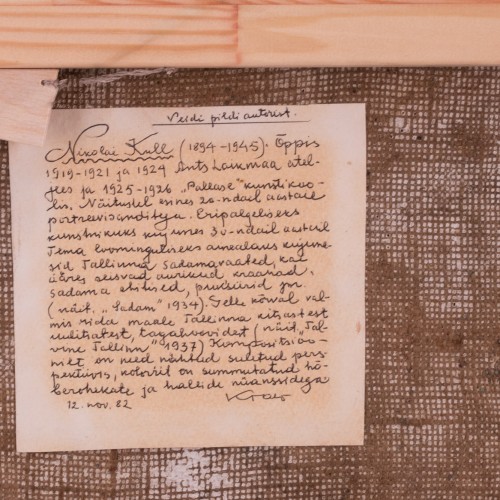 Veidi pildi autorist.
Nikolai Kull (1894-1945). Õppis
1919-1921 ja 1924 Ants Laikmaa atel-
jees ja 1925-1926 „Pallase" kunstikoo-
lis. Näitustel esines 20-ndail aastail
portreevisanditega. Eripalgeliseks
kunstnikuks kujunes 30-ndail aastail
Tema loominguliseks ainealaus kujune-
sid Tallinna sadamavaated, kai
ääres seisvad aurikud kraanad,
sadama ehitised, purjekad jm.
(näit. „Sadam" 1934). Selle kõrval val-
mis rida maale Tallinna kitsastest
tagahoovidest (näit. „Tal-
vine Tallinn" 1937) Kompositsioo-
nilt on need nähtud suletud pers-
pektiivis, koloriit on summutatud hõ-
berohekate ja hallide nüanssidega
12. nov. 82